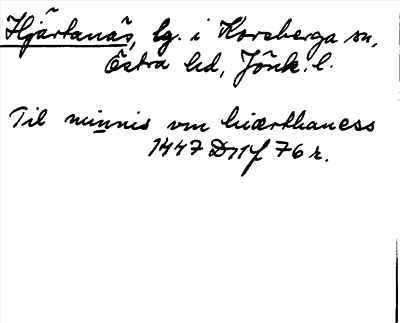 Hjärtanäs, lg. i Korsberga sn,
Östra hd, Jönk. l.
Til minnis vm hiærthaness
1447 D11f 76 r.